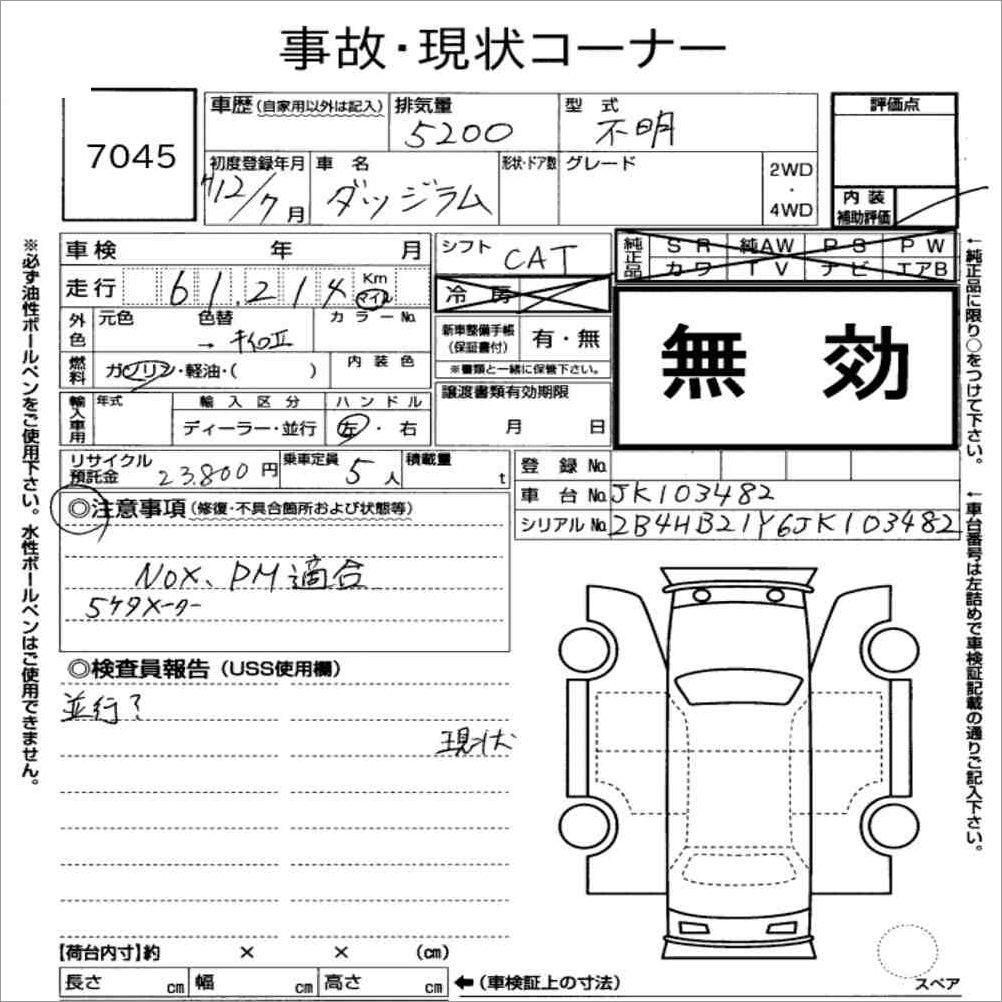 事故・現状コーナー
7045
車歴(自家用以外は記入)
排気量
5200
型式
不明
評価点
初度登録年月
12/7月
車名
ダッジラム
形状・ドア数
グレード
2WD
・
4WD
内装
補助評価
車検 年 月
シフト
CAT
純正品
SR 純AW PS PW
カワ TV ナビ エアB
走行 61,214 Km マイル
冷房
外色
元色 色替 カラーNo.
→
新車整備手帳
(保証書付)
有・無
※書類と一緒に保管下さい。
無効
燃料
ガソリン・軽油・( )
内装色
輸入車用
年式 輸入区分 ハンドル
ディーラー・並行 左・右
譲渡書類有効期限
月 日
リサイクル
預託金
23,800円
乗車定員 5人
積載量 t
登録No.
車台No. JK103482
シリアルNo. 2B4HB21Y6JK103482
◎注意事項(修復・不具合箇所および状態等)
NOX、PM適合
5ケタメーター
◎検査員報告(USS使用欄)
並行?
現状
【荷台内寸】約 × × (cm)
長さ cm 幅 cm 高さ cm ←(車検証上の寸法)
スペア
※必ず油性ボールペンをご使用下さい。水性ボールペンはご使用できません。
←純正品に限り○をつけて下さい。
←車台番号は左詰めで車検証記載の通りご記入下さい。